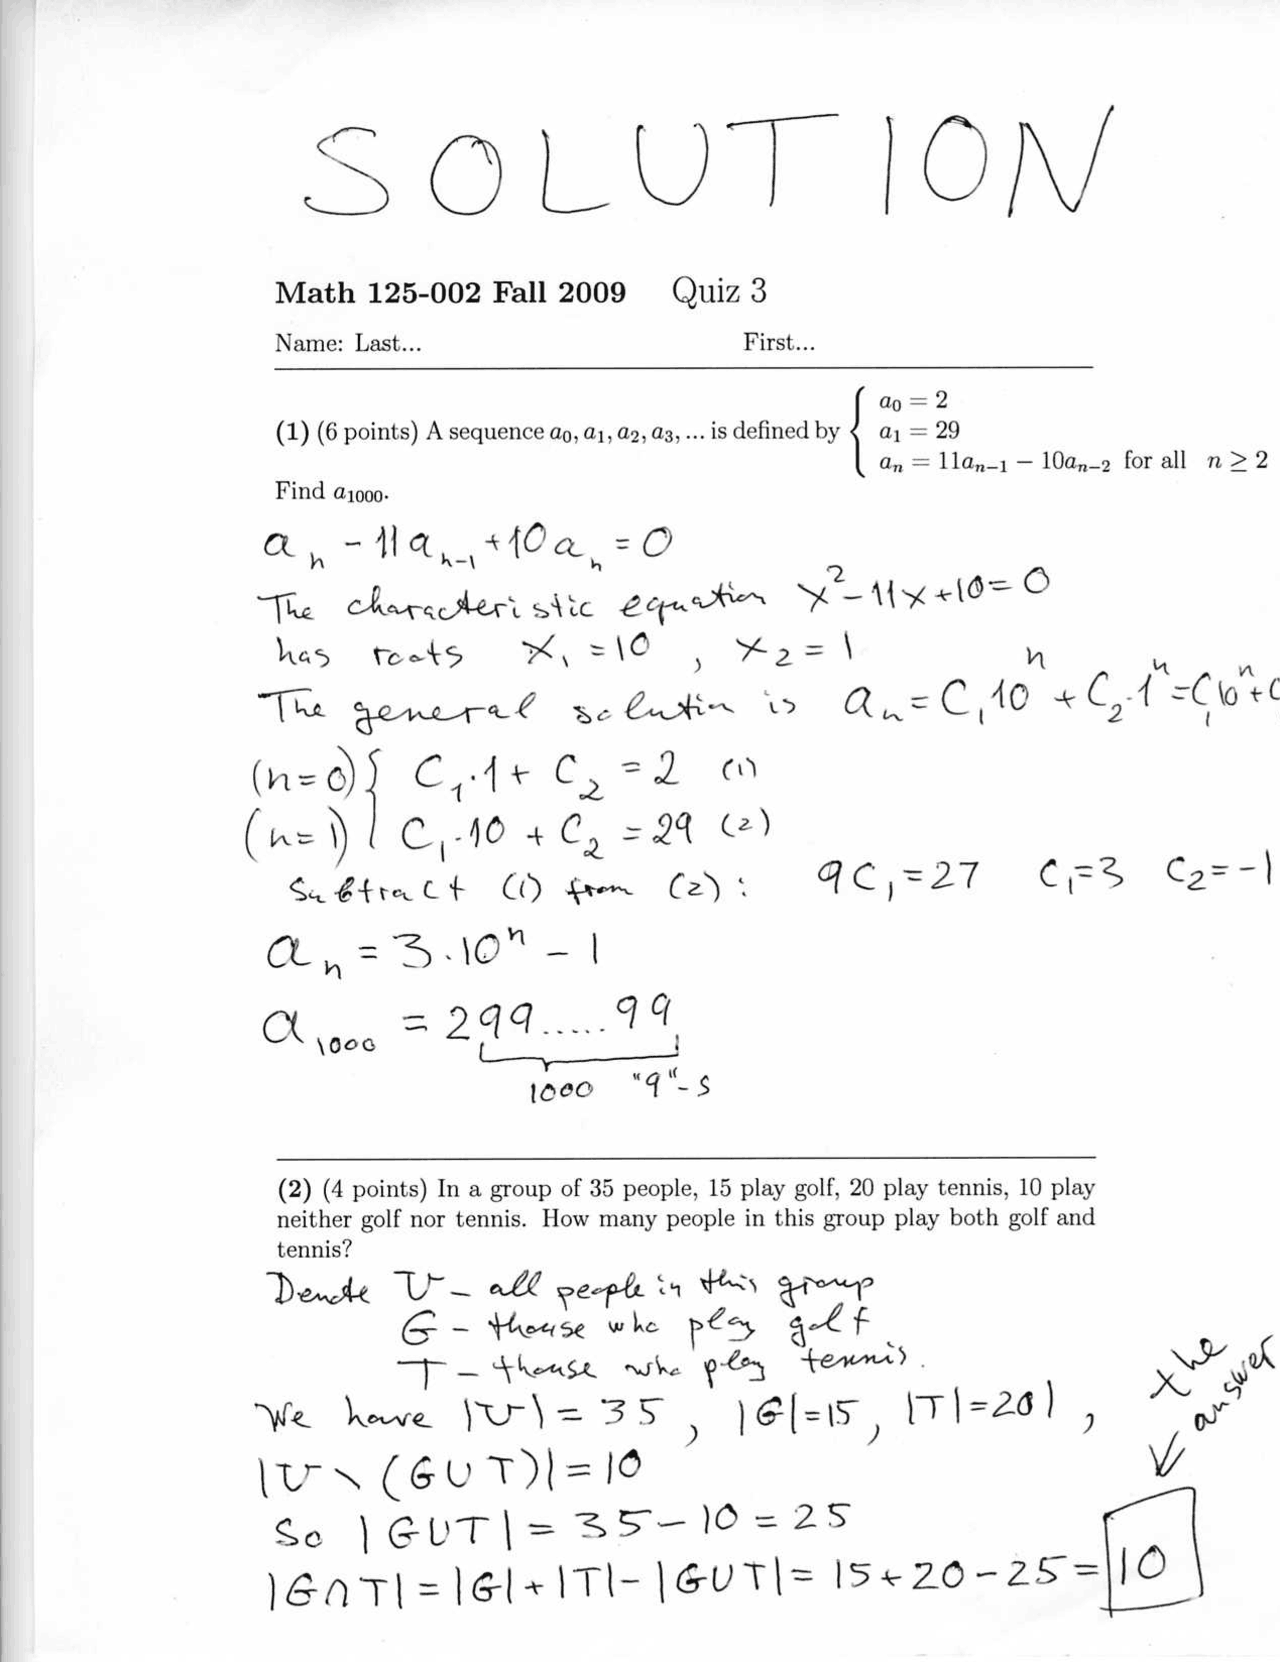 SOLUTION
Math 125-002 Fall 2009 Quiz 3
Name: Last... First...
(1) (6 points) A sequence a₀, a₁, a₂, a₃, ... is defined by { a₀ = 2
a₁ = 29
aₙ = 11aₙ₋₁ − 10aₙ₋₂ for all n ≥ 2
Find a₁₀₀₀.
aₙ - 11aₙ₋₁ + 10aₙ = 0
The characteristic equation x² - 11x + 10 = 0
has roots x₁ = 10 , x₂ = 1
The general solution is aₙ = C₁10ⁿ + C₂·1ⁿ = C₁10ⁿ + C
(n=0) { C₁·1 + C₂ = 2 (1)
(n=1) { C₁·10 + C₂ = 29 (2)
Subtract (1) from (2): 9C₁ = 27 C₁=3 C₂ = -1
aₙ = 3·10ⁿ - 1
a₁₀₀₀ = 299.....99
1000 "9"-s
(2) (4 points) In a group of 35 people, 15 play golf, 20 play tennis, 10 play
neither golf nor tennis. How many people in this group play both golf and
tennis?
Denote U - all people in this group
G - thouse who play golf
T - thouse who play tennis.
We have |U| = 35 , |G|=15, |T|=20| ,
|U \ (G∪T)| = 10
So |G∪T| = 35 - 10 = 25
|G∩T| = |G| + |T| - |G∪T| = 15 + 20 - 25 = 10
the
answer